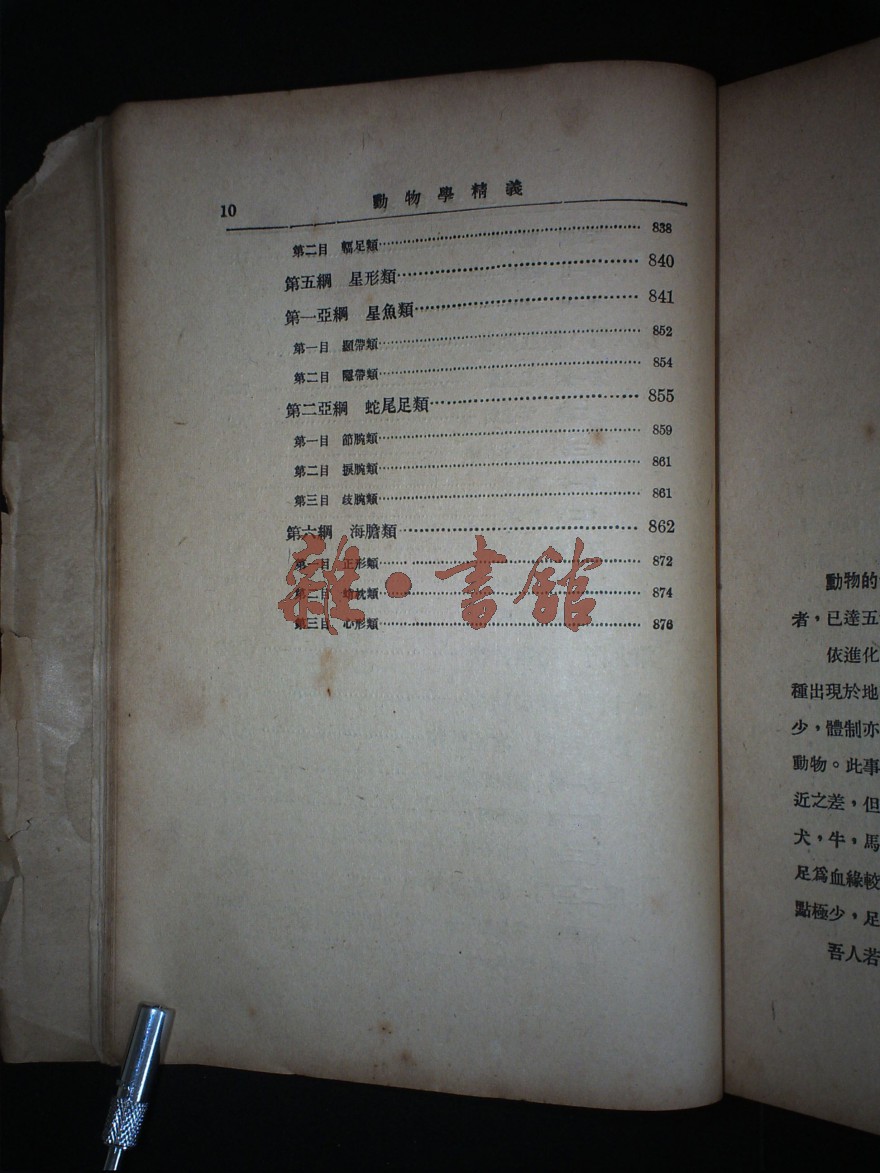 10 動物學精義
第二目 輻足類 838
第五綱 星形類 840
第一亞綱 星魚類 841
第一目 顯帶類 852
第二目 隱帶類 854
第二亞綱 蛇尾足類 855
第一目 節腕類 859
第二目 捩腕類 861
第三目 歧腕類 861
第六綱 海膽類 862
第一目 正形類 872
第二目 蛸枕類 874
第三目 心形類 876
雜·書館
動物的
者，已達五
依進化
種出現於地
少，體制亦
動物。此事
近之差，但
犬，牛，馬
足爲血緣較
點極少，足
吾人若